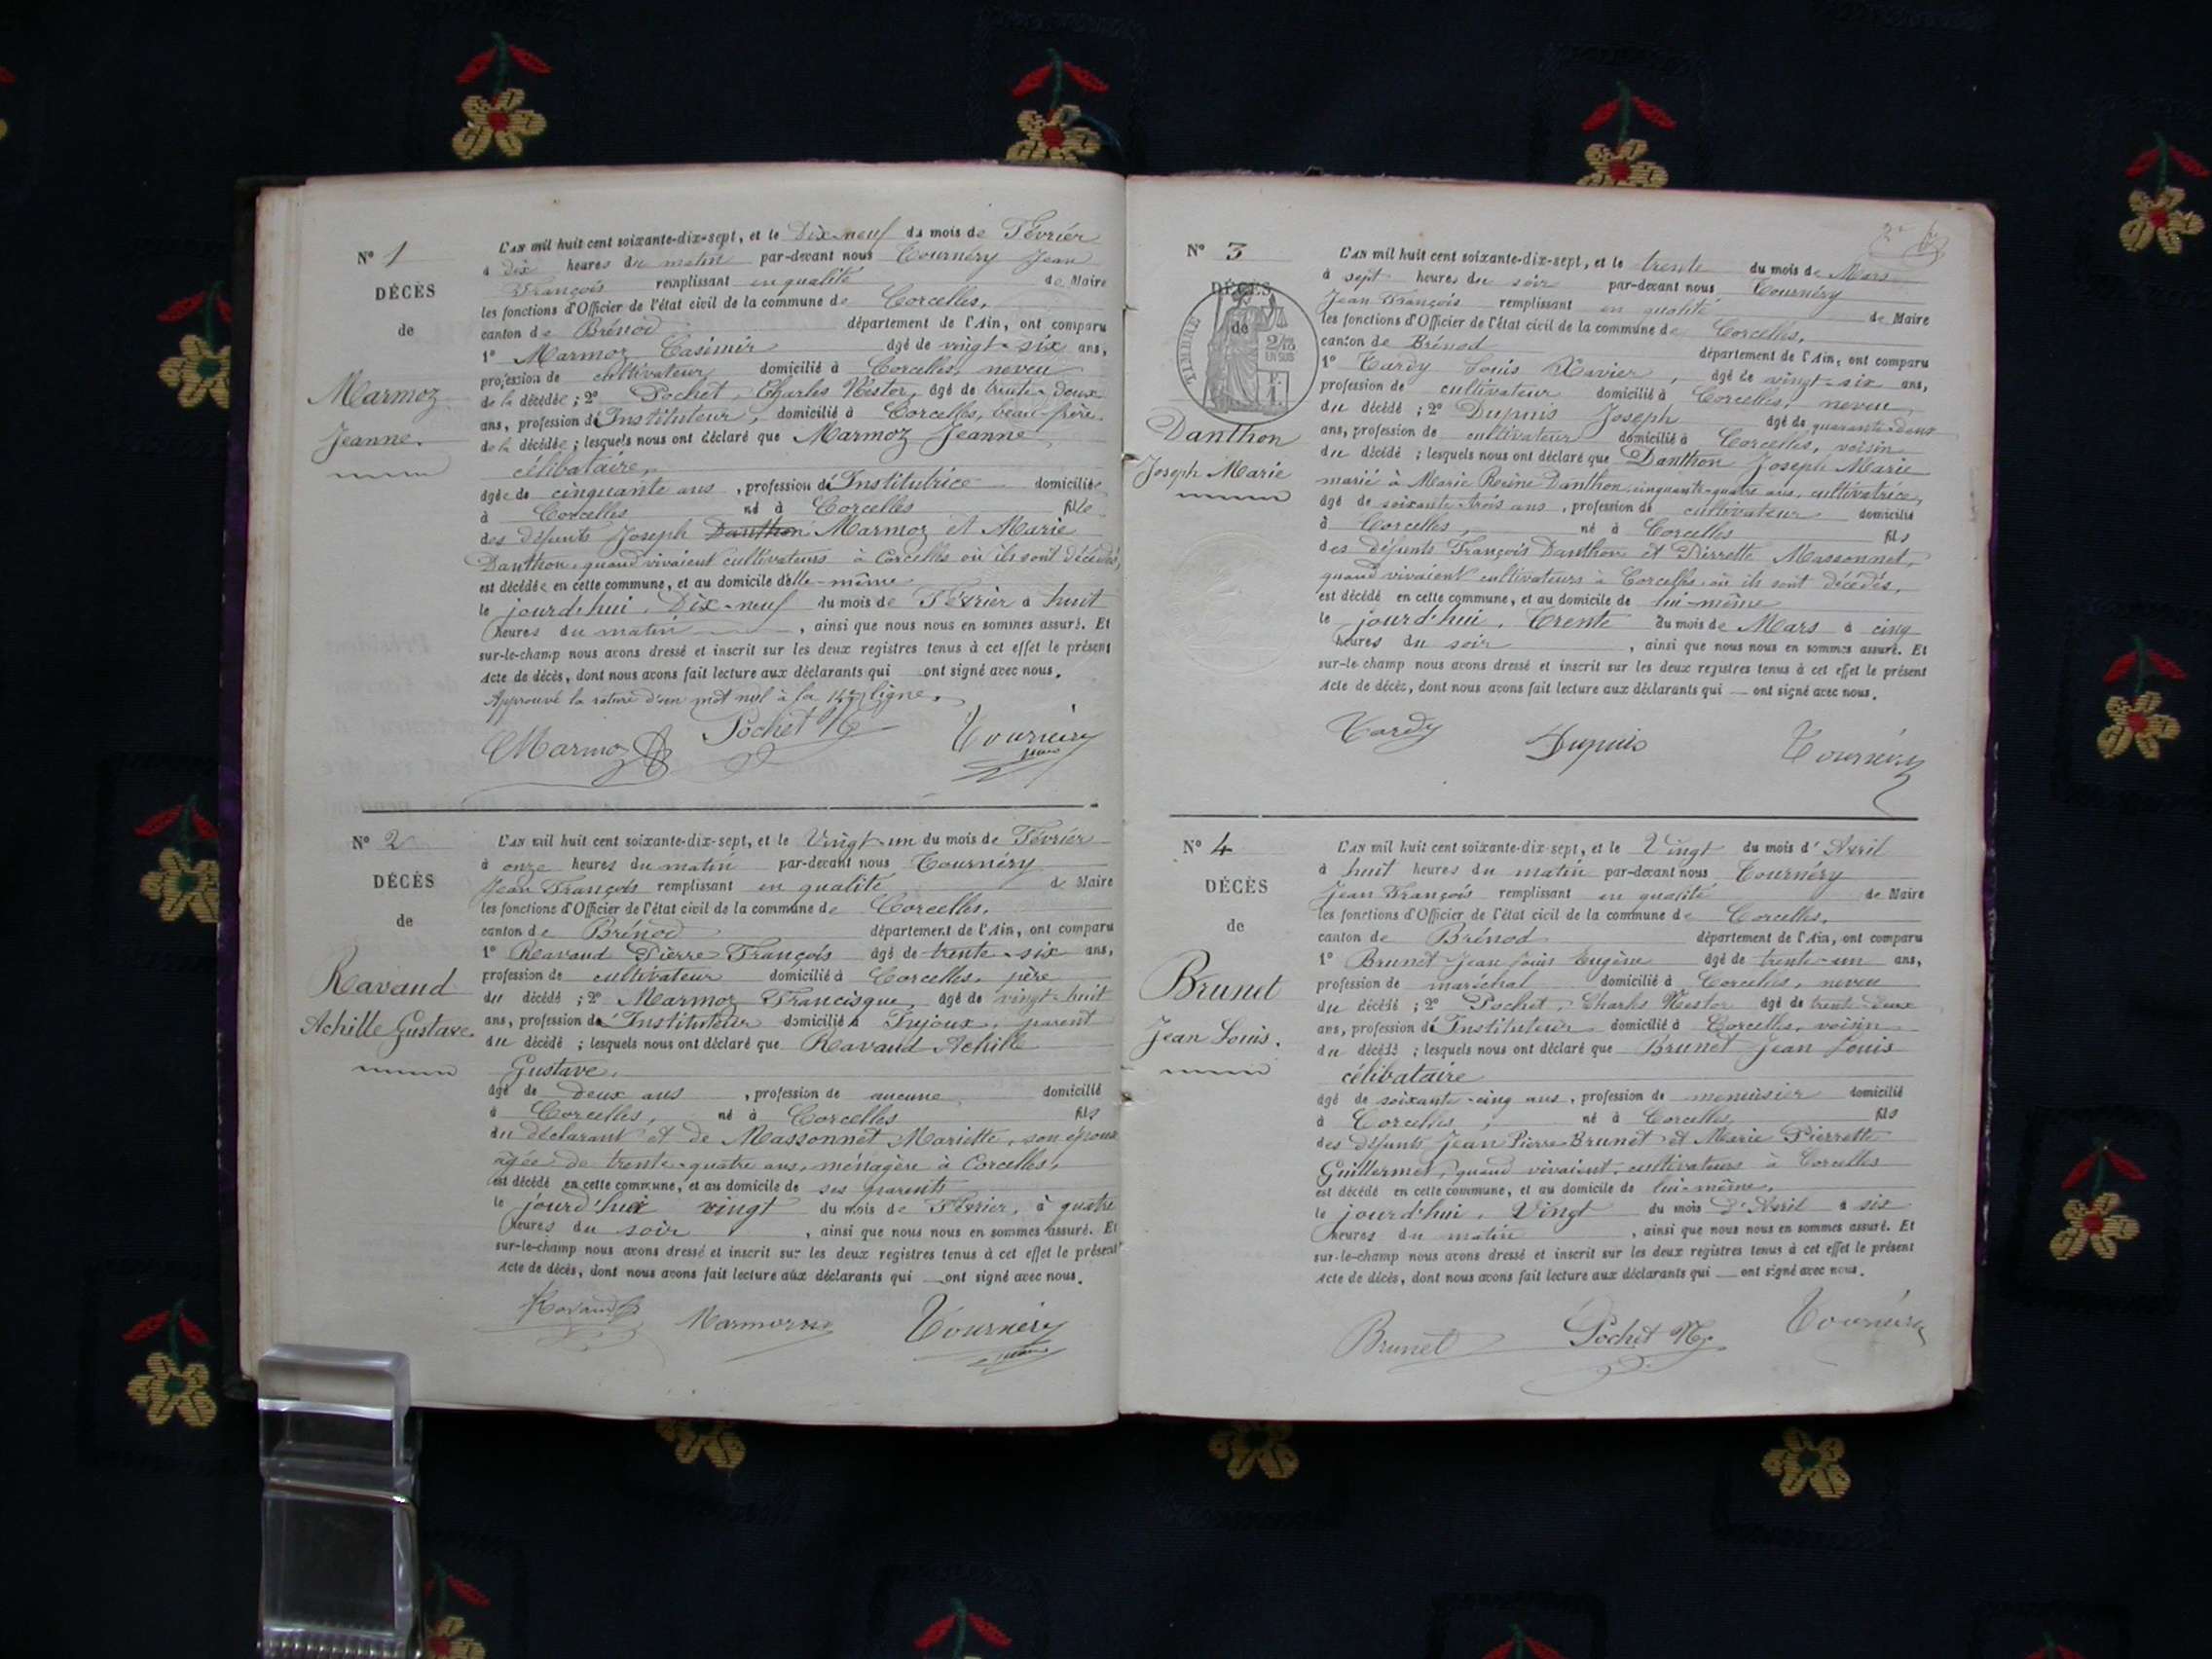 N° 1
DÉCÈS
de
Marmoz
Jeanne.
L'AN mil huit cent soixante-dix-sept, et le Dix-neuf du mois de Février
à dix heures du matin par-devant nous Tournéry Jean
François remplissant en qualité de Maire
les fonctions d'Officier de l'état civil de la commune de Corcelles,
canton de Brénod département de l'Ain, ont comparu
1° Marmoz Casimir âgé de vingt-six ans,
profession de cultivateur domicilié à Corcelles, neveu
de la décédée ; 2° Pochet, Charles Nestor, âgé de trente-deux
ans, profession d'Instituteur, domicilié à Corcelles, beau-frère
de la décédée ; lesquels nous ont déclaré que Marmoz Jeanne
célibataire,
âgée de cinquante ans, profession d'Institutrice domiciliée
à Corcelles né à Corcelles fille
des défunts Joseph Danthon Marmoz et Marie
Danthon, quand vivaient cultivateurs à Corcelles où ils sont décédés,
est décédée en cette commune, et au domicile d'elle-même
le jourd'hui, Dix-neuf du mois de Février à huit
heures du matin, ainsi que nous nous en sommes assuré. Et
sur-le-champ nous avons dressé et inscrit sur les deux registres tenus à cet effet le présent
acte de décès, dont nous avons fait lecture aux déclarants qui ont signé avec nous.
Approuvé la rature d'un mot nul à la 14e ligne.
Marmoz Pochet N Tournéry
N° 2
DÉCÈS
de
Ravaud
Achille Gustave.
L'AN mil huit cent soixante-dix-sept, et le Vingt-un du mois de Février
à onze heures du matin par-devant nous Tournéry
Jean François remplissant en qualité de Maire
les fonctions d'Officier de l'état civil de la commune de Corcelles,
canton de Brénod département de l'Ain, ont comparu
1° Ravaud Pierre François âgé de trente-six ans,
profession de cultivateur domicilié à Corcelles, père
du décédé ; 2° Marmoz Francisque, âgé de vingt-huit
ans, profession d'Instituteur domicilié à Injoux, parent
du décédé ; lesquels nous ont déclaré que Ravaud Achille
Gustave,
âgé de deux ans, profession de aucune domicilié
à Corcelles, né à Corcelles fils
du déclarant et de Massonnet Mariette, son épouse
âgée de trente-quatre ans, ménagère à Corcelles,
est décédé en cette commune, et au domicile de ses parents
le jourd'hui vingt du mois de Février, à quatre
heures du soir, ainsi que nous nous en sommes assuré. Et
sur-le-champ nous avons dressé et inscrit sur les deux registres tenus à cet effet le présent
acte de décès, dont nous avons fait lecture aux déclarants qui ont signé avec nous.
Ravaud Marmoz Tournéry
N° 3
DÉCÈS
de
TIMBRE
2/10
EN SUS
Danthon
Joseph Marie
L'AN mil huit cent soixante-dix-sept, et le trente du mois de Mars
à sept heures du soir par-devant nous Tournéry
Jean François remplissant en qualité de Maire
les fonctions d'Officier de l'état civil de la commune de Corcelles,
canton de Brénod département de l'Ain, ont comparu
1° Tardy Louis Xavier, âgé de vingt-six ans,
profession de cultivateur domicilié à Corcelles, neveu
du décédé ; 2° Dupuis Joseph âgé de quarante-deux
ans, profession de cultivateur domicilié à Corcelles, voisin
du décédé ; lesquels nous ont déclaré que Danthon Joseph Marie
marié à Marie Reine Danthon, cinquante-quatre ans, cultivatrice,
âgé de soixante-trois ans, profession de cultivateur domicilié
à Corcelles, né à Corcelles fils
des défunts François Danthon et Pierrette Massonnet,
quand vivaient cultivateurs à Corcelles où ils sont décédés,
est décédé en cette commune, et au domicile de lui-même
le jourd'hui, Trente du mois de Mars à cinq
heures du soir, ainsi que nous nous en sommes assuré. Et
sur-le-champ nous avons dressé et inscrit sur les deux registres tenus à cet effet le présent
acte de décès, dont nous avons fait lecture aux déclarants qui ont signé avec nous.
Tardy Dupuis Tournéry
N° 4
DÉCÈS
de
Brunet
Jean Louis.
L'AN mil huit cent soixante-dix-sept, et le Vingt du mois d'Avril
à huit heures du matin par-devant nous Tournéry
Jean François remplissant en qualité de Maire
les fonctions d'Officier de l'état civil de la commune de Corcelles,
canton de Brénod département de l'Ain, ont comparu
1° Brunet Jean Louis Eugène âgé de trente-un ans,
profession de maréchal domicilié à Corcelles, neveu
du décédé ; 2° Pochet, Charles Nestor âgé de trente-deux
ans, profession d'Instituteur domicilié à Corcelles, voisin
du décédé ; lesquels nous ont déclaré que Brunet Jean Louis
célibataire
âgé de soixante-cinq ans, profession de menuisier domicilié
à Corcelles, né à Corcelles fils
des défunts Jean Pierre Brunet et Marie Pierrette
Guillermet, quand vivaient, cultivateurs à Corcelles
est décédé en cette commune, et au domicile de lui-même,
le jourd'hui, Vingt du mois d'Avril à six
heures du matin, ainsi que nous nous en sommes assuré. Et
sur-le-champ nous avons dressé et inscrit sur les deux registres tenus à cet effet le présent
acte de décès, dont nous avons fait lecture aux déclarants qui ont signé avec nous.
Brunet Pochet N Tournéry